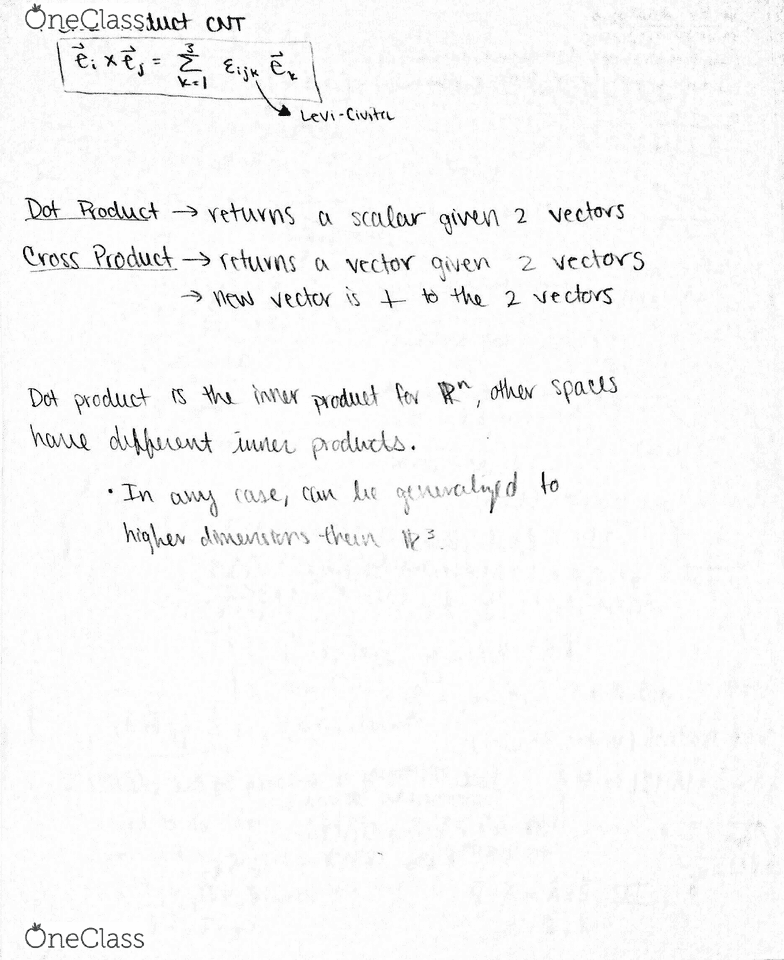 OneClass duct CNT
e⃗ᵢ × e⃗ⱼ = Σ³ₖ₌₁ εᵢⱼₖ e⃗ₖ
Levi-Civita
Dot Product → returns a scalar given 2 vectors
Cross Product → returns a vector given 2 vectors
→ new vector is ⊥ to the 2 vectors
Dot product is the inner product for ℝⁿ, other spaces
have different inner products.
• In any case, can be generalized to
higher dimensions than ℝ³.
OneClass